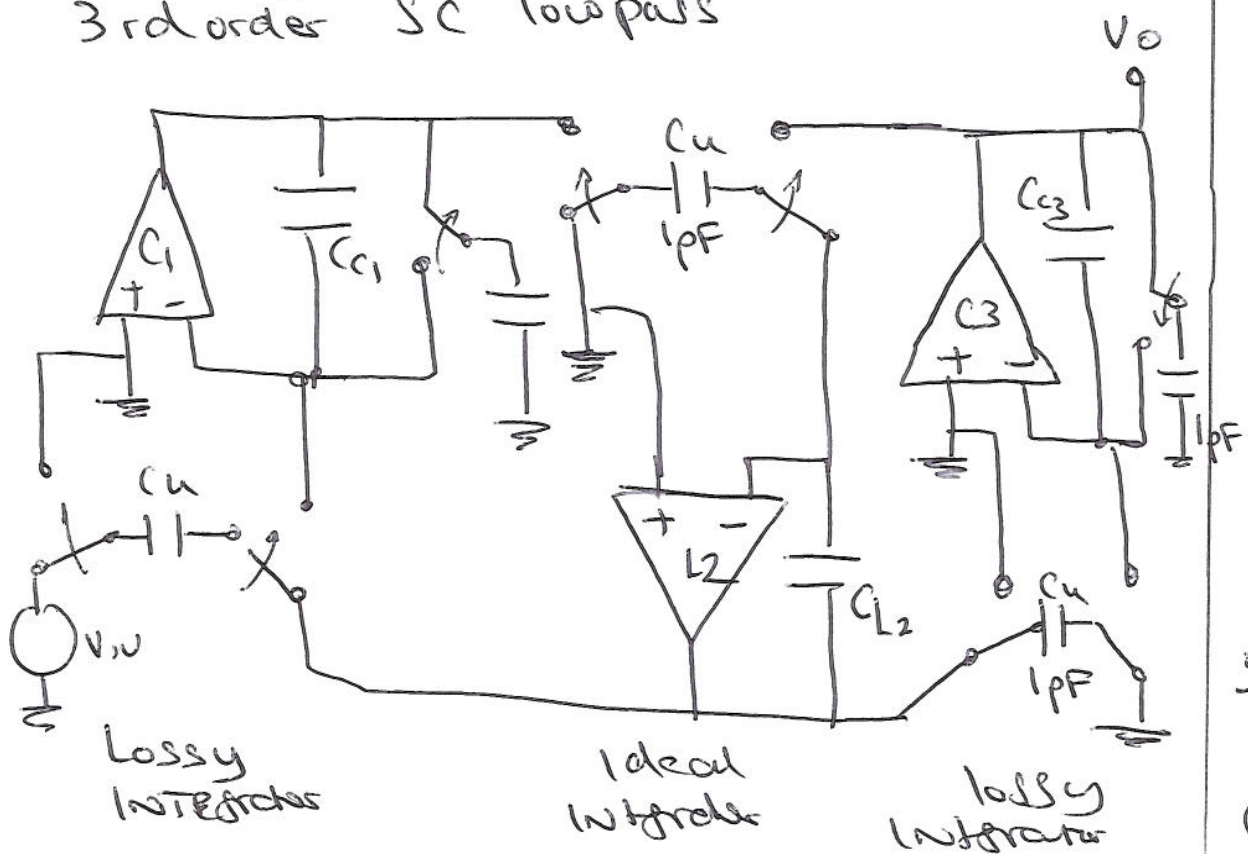 3rd order SC lowpass
Vo
Cu
1pF
C1
+ -
CC1
CC3
C3
+ -
1pF
Cu
+ -
L2
CL2
Cu
1pF
VIN
Lossy
INTEgrator
Ideal
Integrator
lossy
Integrator